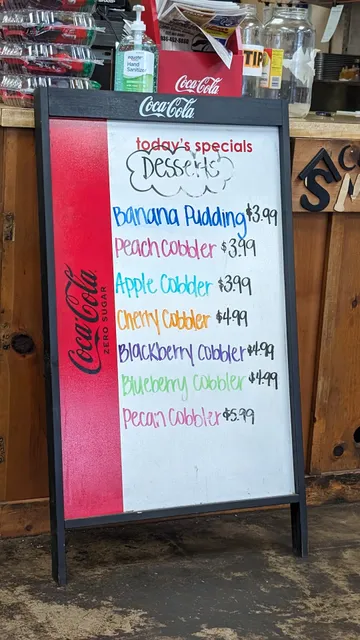 Hand Sanitizer
Coca-Cola
TIP
Coca-Cola
today's specials
Desserts
Banana Pudding $3.99
Peach Cobbler $3.99
Apple Cobbler $3.99
Cherry Cobbler $4.99
Blackberry Cobbler $4.99
Blueberry Cobbler $4.99
Pecan Cobbler $5.99
Coca-Cola
ZERO SUGAR